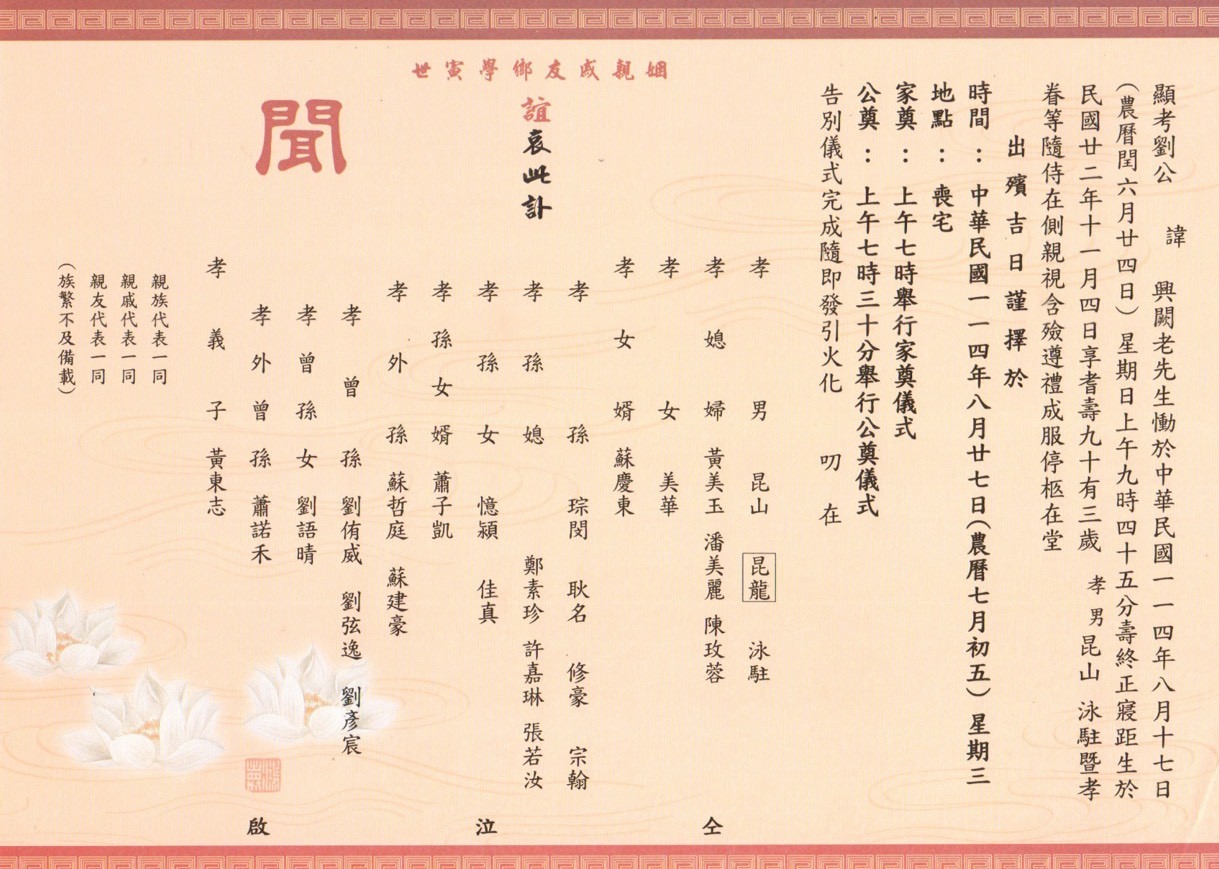 顯考劉公 諱 興闕老先生慟於中華民國一一四年八月十七日
(農曆閏六月廿四日)星期日上午九時四十五分壽終正寢距生於
民國廿二年十一月四日享耆壽九十有三歲 孝男昆山 泳駐暨孝
眷等隨侍在側親視含殮遵禮成服停柩在堂
出殯吉日謹擇於
時間：中華民國一一四年八月廿七日(農曆七月初五)星期三
地點：喪宅
家奠：上午七時舉行家奠儀式
公奠：上午七時三十分舉行公奠儀式
告別儀式完成隨即發引火化 叨 在
姻親戚友鄉學寅世
誼哀此訃
聞
孝男 昆山 昆龍 泳駐
孝媳婦 黃美玉 潘美麗 陳玫蓉
孝女 美華
孝女婿 蘇慶東
孝孫 琮閔 耿名 修豪 宗翰
孝孫媳 鄭素珍 許嘉琳 張若汝
孝孫女 憶潁 佳真
孝孫女婿 蕭子凱
孝外孫 蘇哲庭 蘇建豪
孝曾孫 劉侑威 劉弦逸 劉彥宸
孝曾孫女 劉語晴
孝外曾孫 蕭諾禾
孝義子 黃東志
親族代表一同
親戚代表一同
親友代表一同
(族繁不及備載)
仝 泣 啟